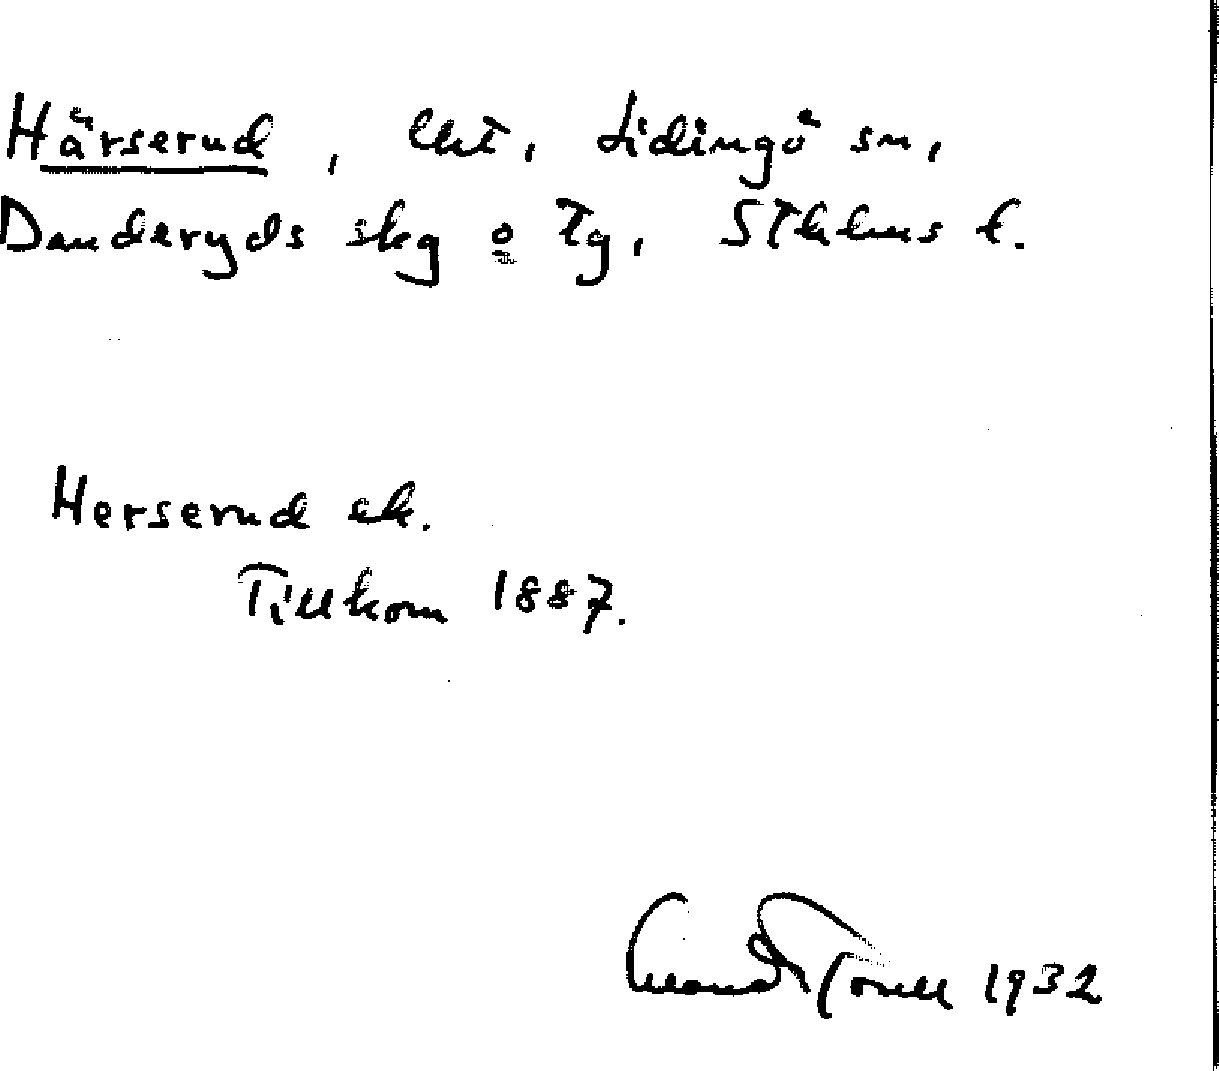 Härserud, lht, Lidingö sn,
Danderyds skg o Tg, Sthlms l.
Herserud ek.
Tillkom 1887.
Torell 1932